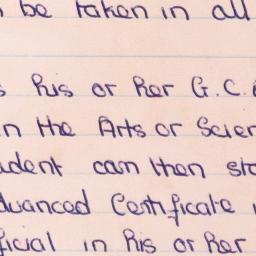 be taken in all
his or her G.C.
in the Arts or Scien
udent can then st
dvanced Certificate
ficial in his or her